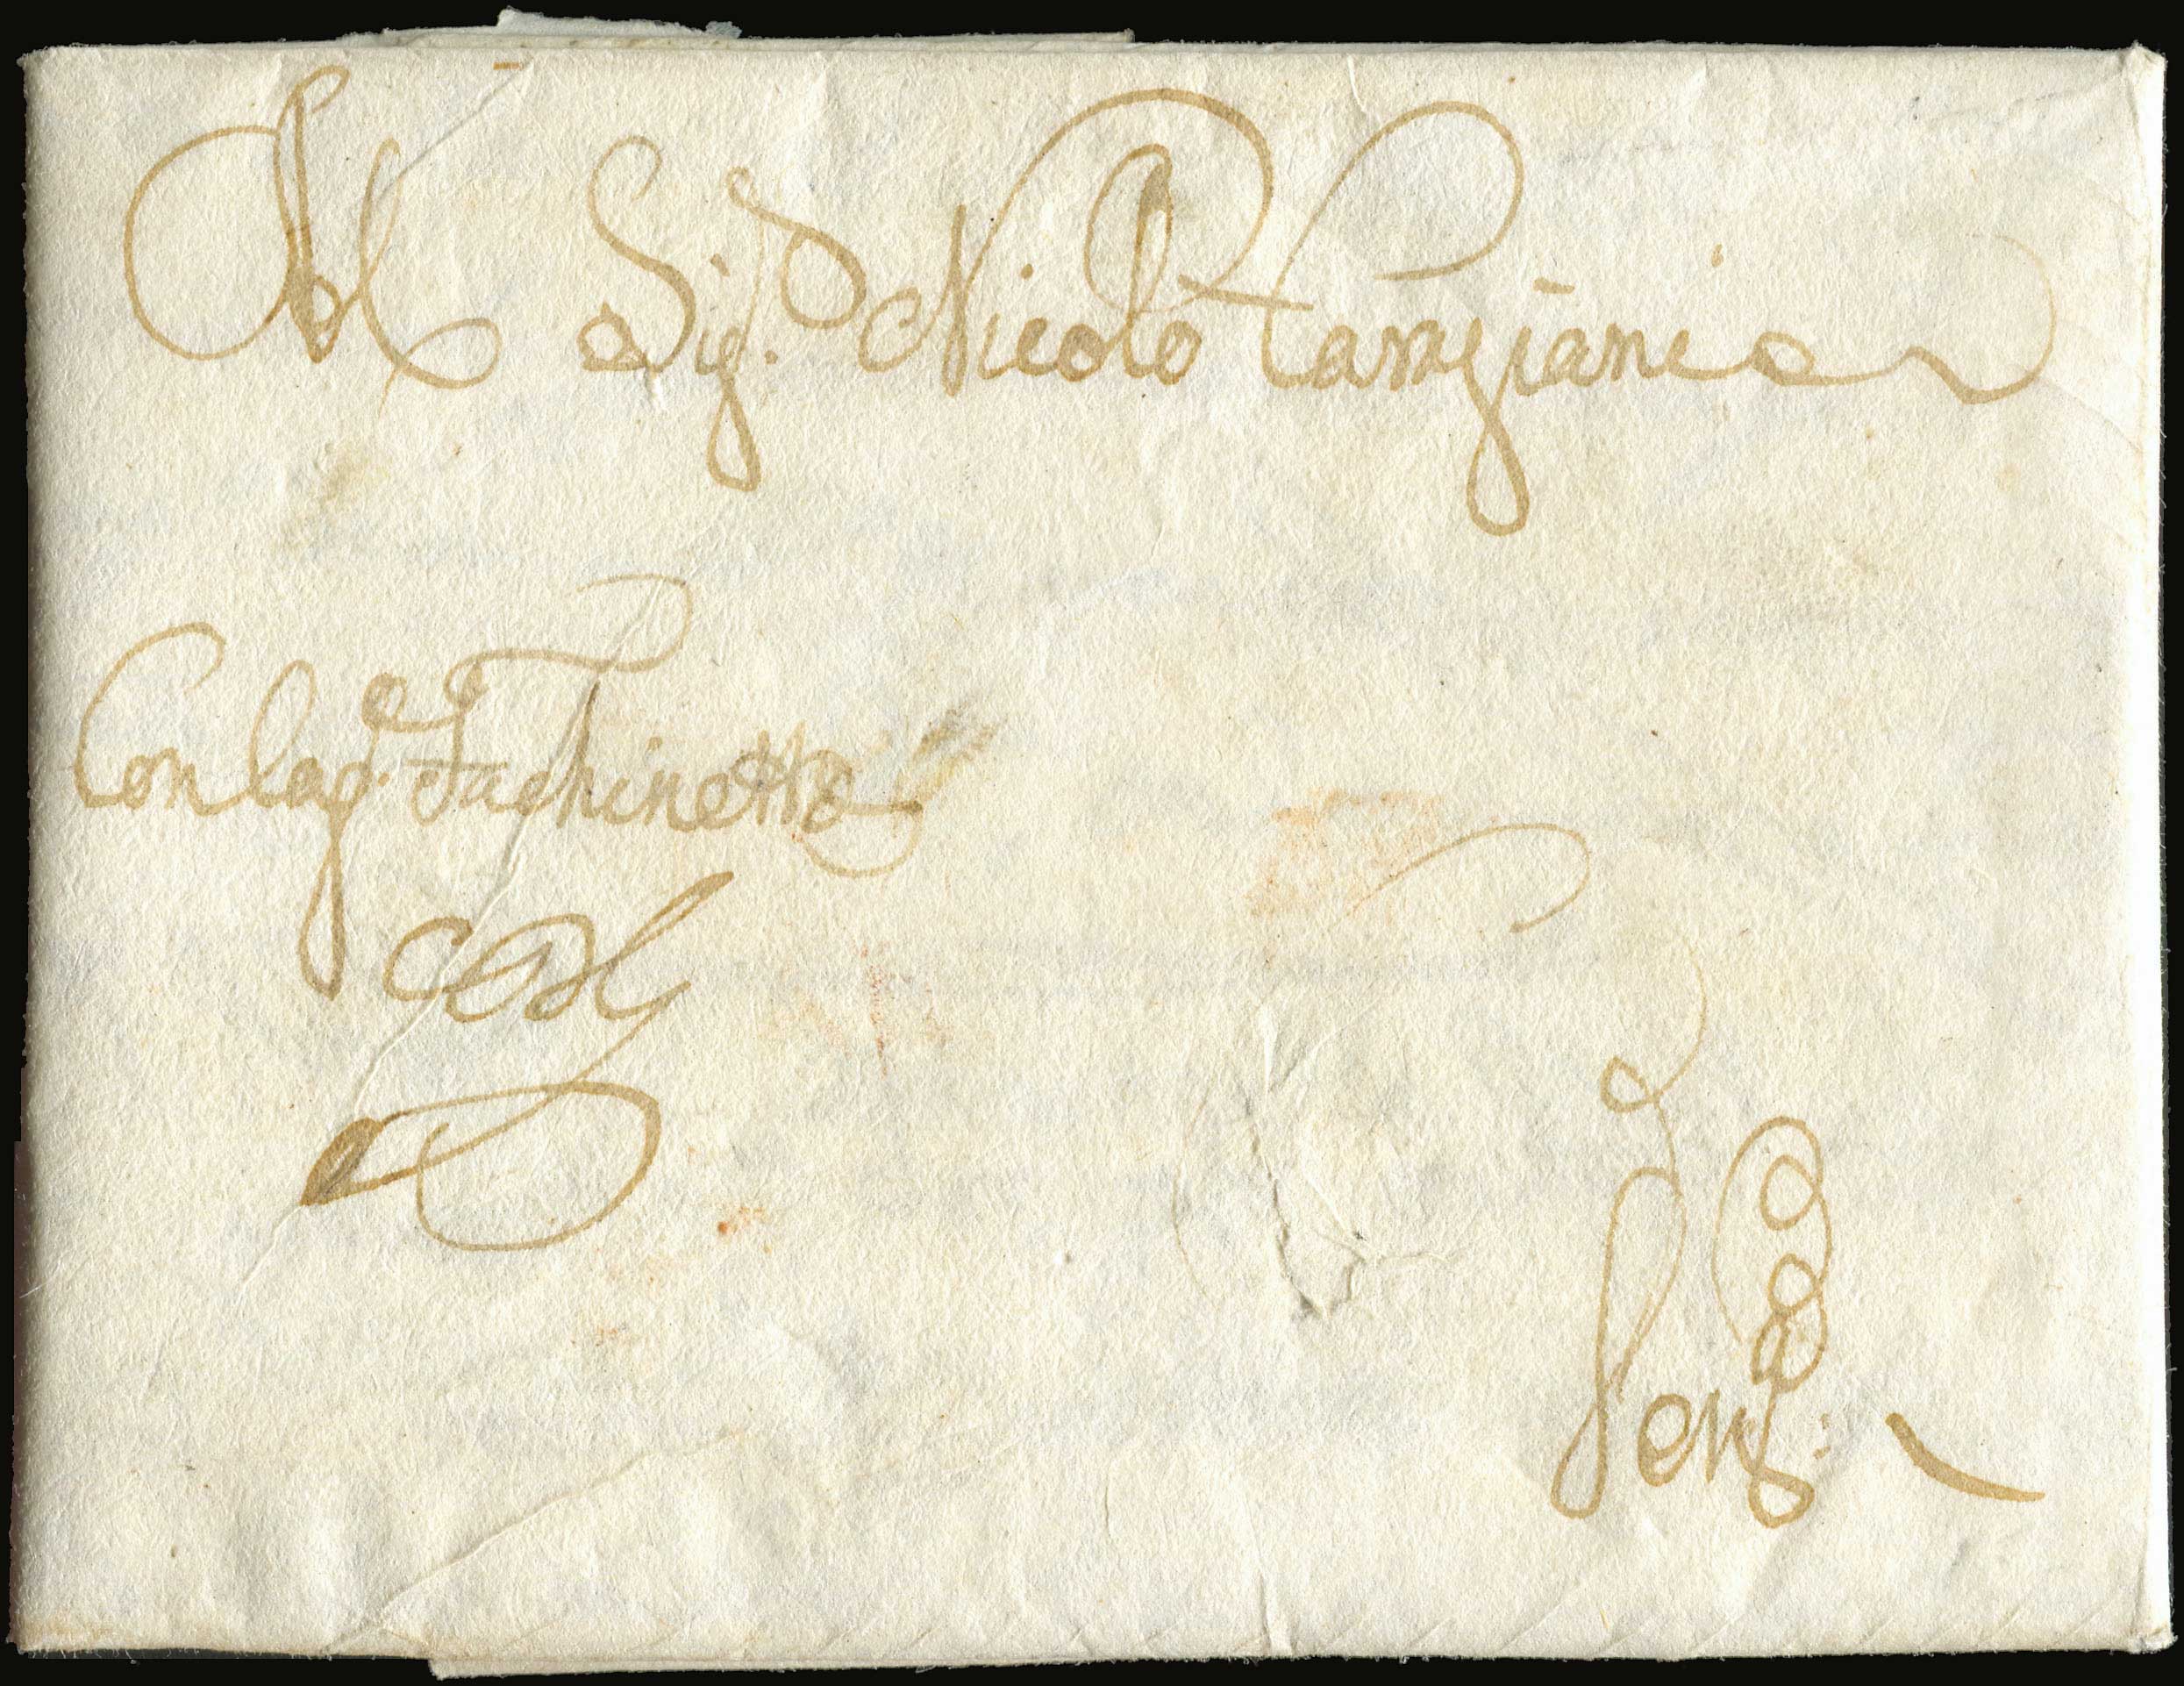 Al Sig.r Nicolo Caragiani
Con la q.e Fachinetto
Ven.a